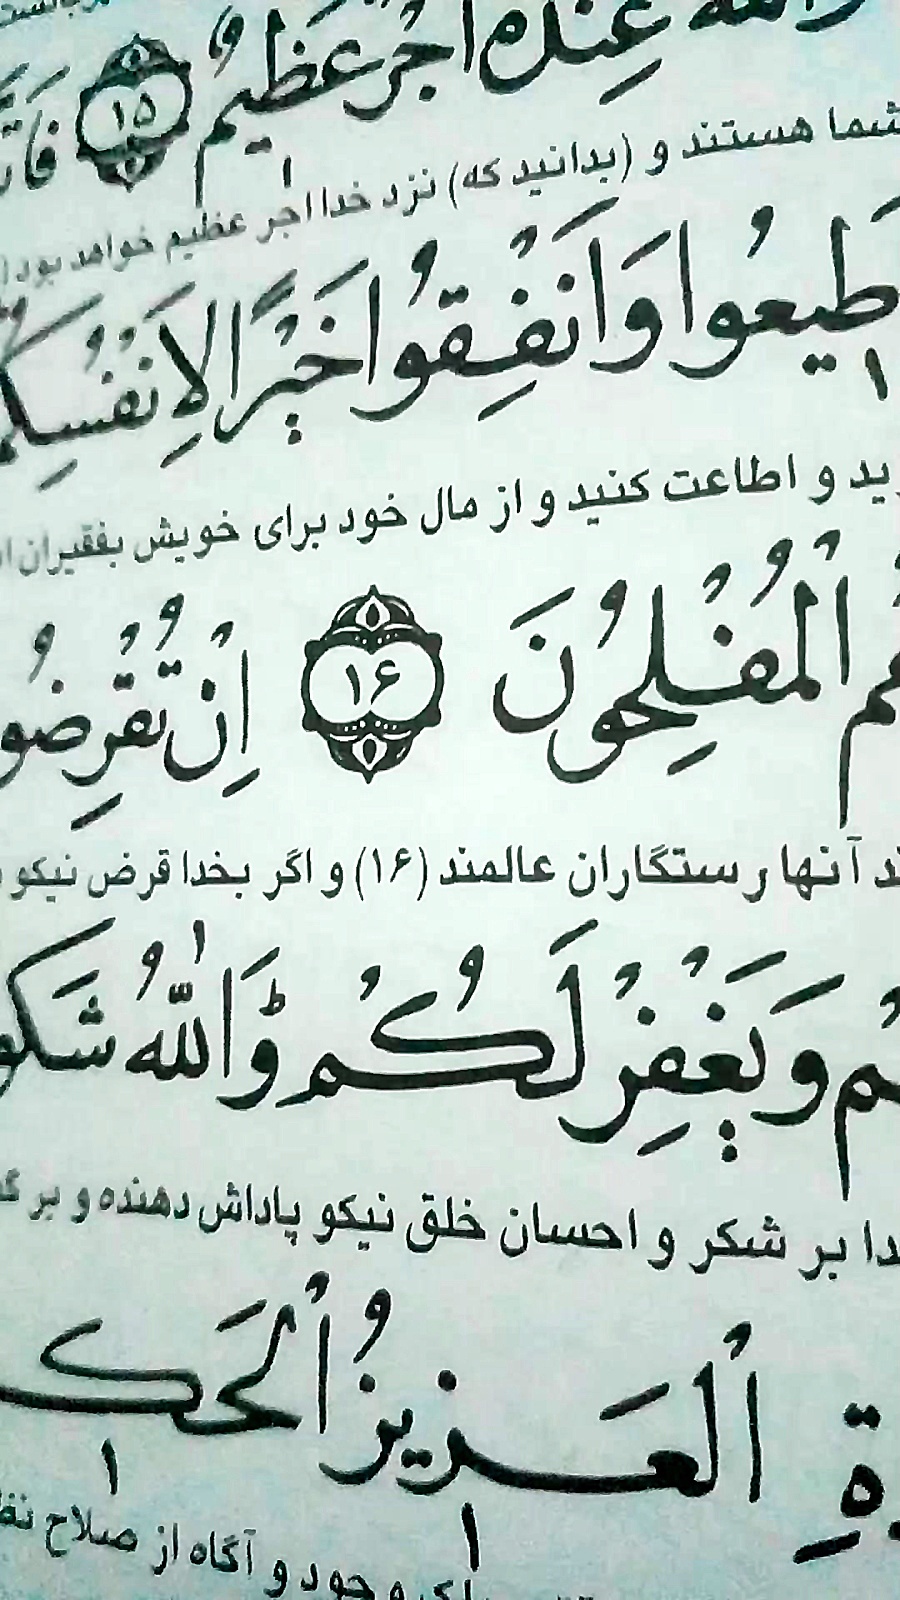 عِندَهُ اَجْرٌ عَظِيمٌ ۱۵
شما هستند و (بدانید که) نزد خدا اجر عظیم خواهد بود
طِيعُوا وَاَنْفِقُوا خَيْرًا لِاَنْفُسِكُ
ید و اطاعت کنید و از مال خود برای خویش بفقیران
الْمُفْلِحُونَ ۱۶ اِنْ تُقْرِضُو
ند آنها رستگاران عالمند (۱۶) و اگر بخدا قرض نیکو
كُمْ وَيَغْفِرْ لَكُمْ وَاللّٰهُ شَكُو
دا بر شکر و احسان خلق نیکو پاداش دهنده و بر گ
ةِ الْعَزِيزُ الْحَك
و جود و آگاه از صلاح نظ